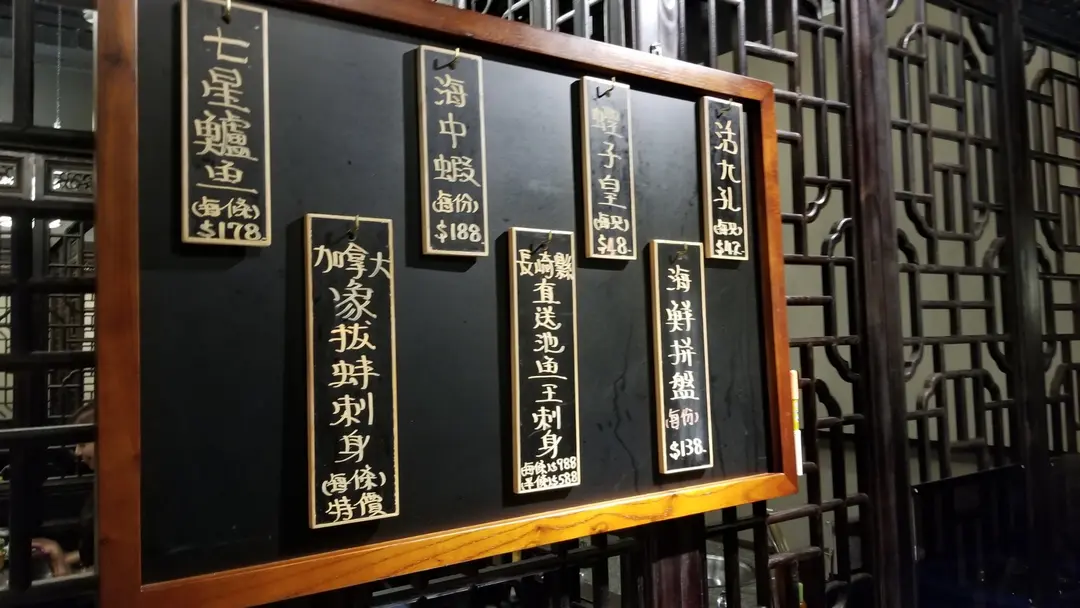 七星鱸鱼
(每條)
$178.
加拿大
象拔蚌刺身
(每條)
特價
海中蝦
(每份)
$188.
長崎縣
直送池鱼王刺身
(每條)$988
(半條)$588
蟶子皇
(每只)
$48.
海鮮拼盤
(每份)
$138.
活九孔
(每只)
$42.